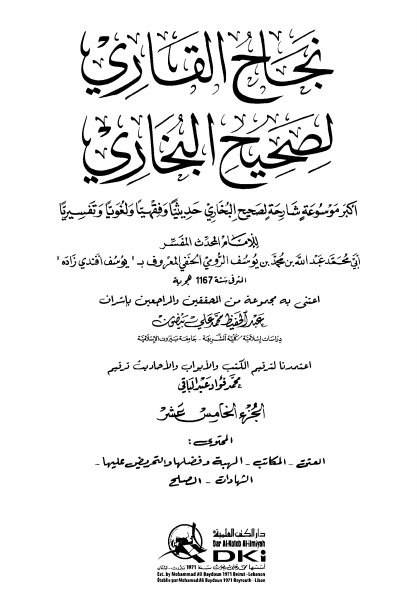 نجاح القاري
لصحيح البخاري
أكبر موسوعة شارحة لصحيح البخاري حديثيًّا وفقهيًّا ولغويًّا وتفسيريًّا
للإمام المحدث المفسر
أبي محمد عبد الله بن محمد بن يوسف الرومي الحنفي المعروف بـ "يوسف أفندي زاده"
المتوفى سنة 1167 هجرية
اعتنى به مجموعة من المحققين والمراجعين بإشراف
عبد الحفيظ محمد علي بيضون
دراسات إسلامية/كلية الشريعة - جامعة بيروت الإسلامية
اعتمدنا لترقيم الكتب والأبواب والأحاديث ترقيم
محمد فؤاد عبد الباقي
الجزء الخامس عشر
المحتوى:
العتق - المكاتب - الهبة وفضلها والتحريض عليها -
الشهادات - الصلح
دار الكتب العلمية
Dar Al-Kotob Al-ilmiyah
DKi
أسسها محمد علي بيضون سنة 1971 بيروت - لبنان
Est. by Mohammad Ali Baydoun 1971 Beirut - Lebanon
Établie par Mohamad Ali Baydoun 1971 Beyrouth - Liban